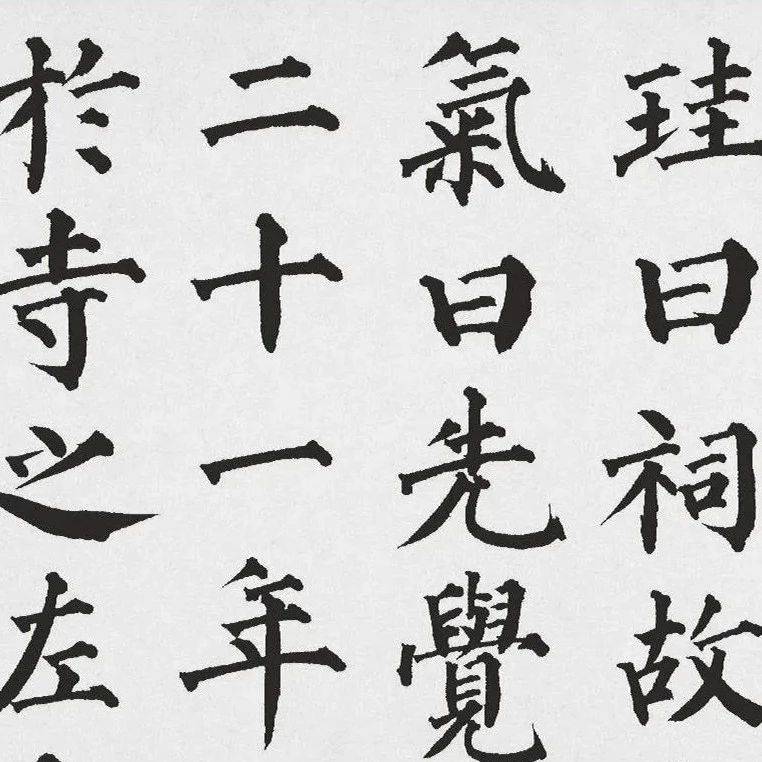 珪曰祠故
氣曰先覺
二十一年
於寺之左